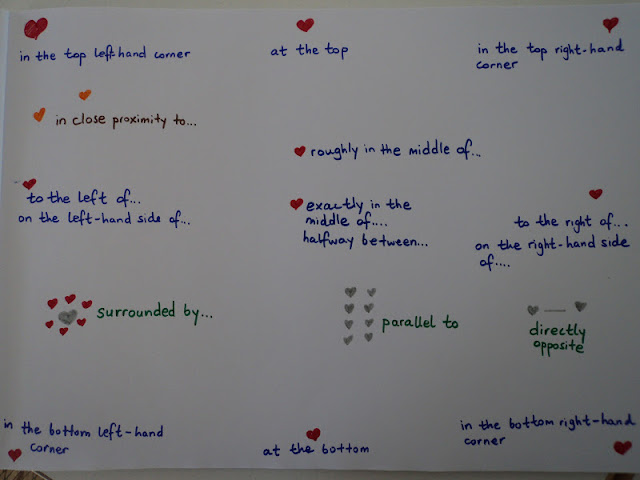 in the top left-hand corner
at the top
in the top right-hand
corner
in close proximity to...
roughly in the middle of...
to the left of...
on the left-hand side of...
exactly in the
middle of....
halfway between...
to the right of...
on the right-hand side
of....
surrounded by...
parallel to
directly
opposite
in the bottom left-hand
corner
at the bottom
in the bottom right-hand
corner